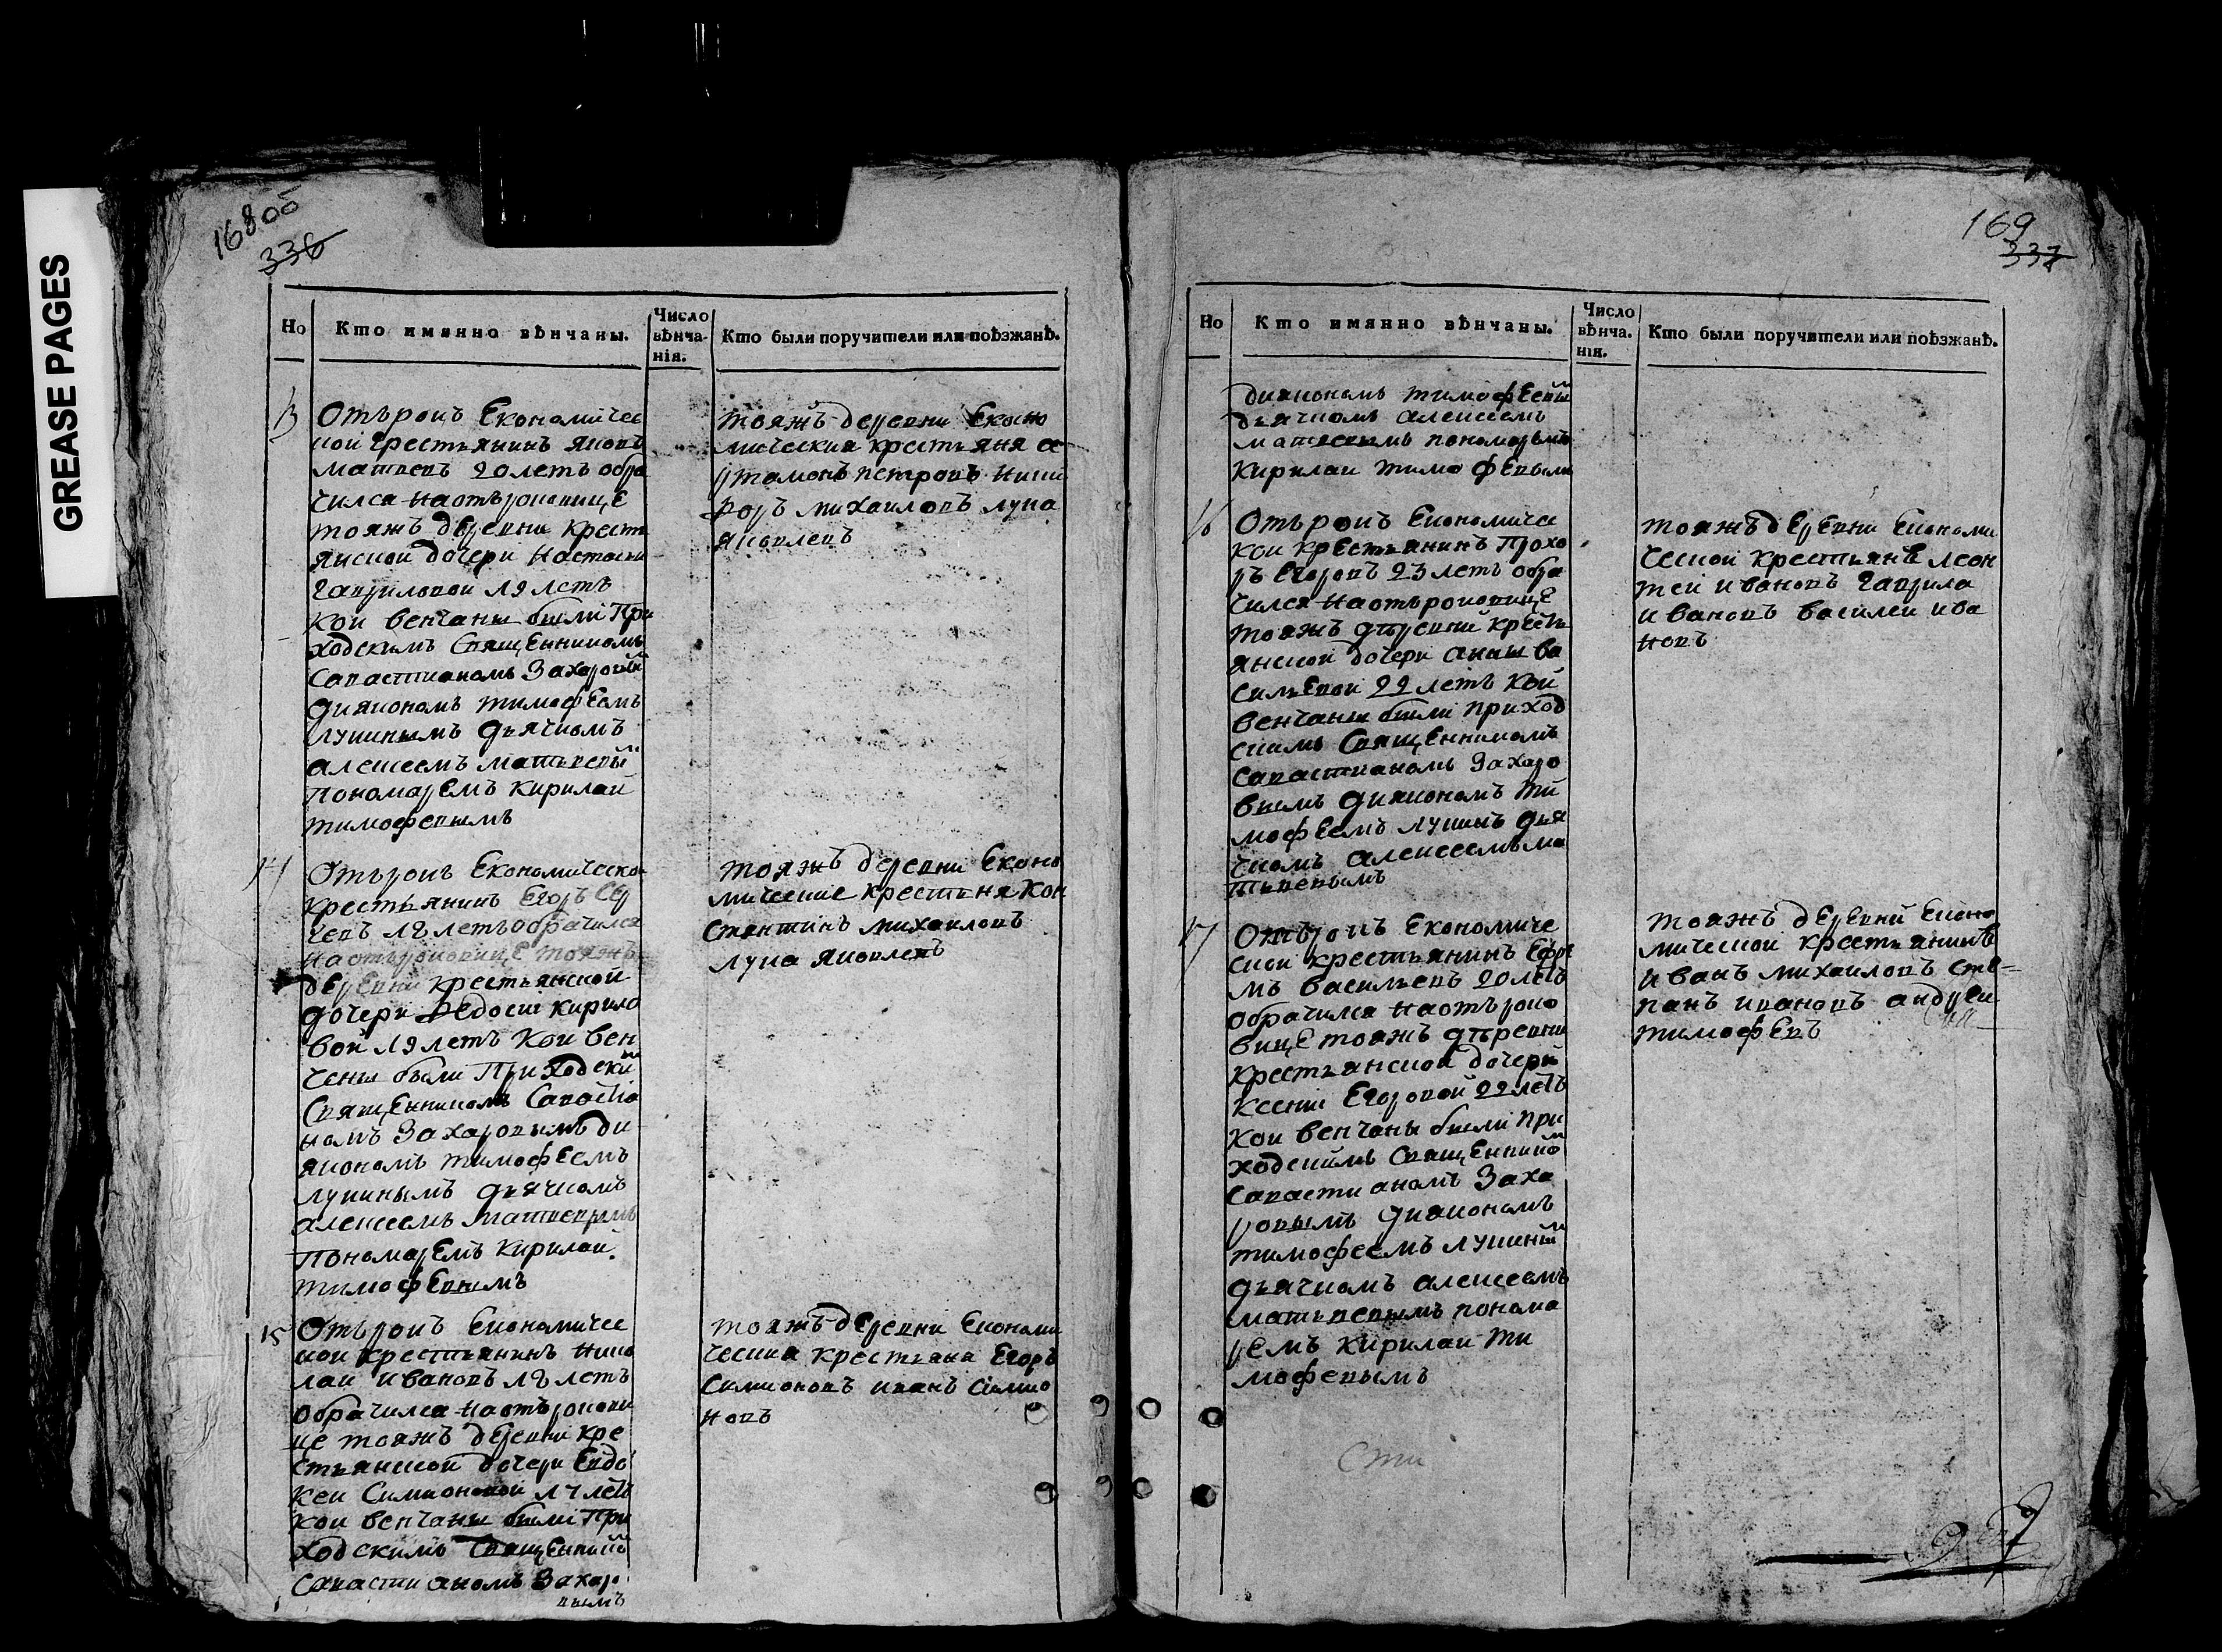 GREASE PAGES
168об
336
Но
Кто имянно вѣнчаны.
Число вѣнча-
нія.
Кто были поручители или поѣзжанѣ.
13
Отърокъ Економичес
кой крестьянинъ яковъ
матвевъ 20 летъ обра
чился наотъроковице
тояжъ деревни крестъ
янской дочери настасьи
гавриловой 19 летъ
кои венчаны были При
ходскимъ Священникомъ
Савастианомъ Захаровым
диякономъ тимофеемъ
лукинымъ дьячкомъ
алексеемъ матьвевым
Пономаремъ кирилай
тимофевымъ
тояжъ деревни Економ
мическия крестьяня а
ртамонъ петровъ ники
форъ михаиловъ лука
яковлевъ
14
Отърокъ Економическо
крестьянинъ Егоръ Сер
геевъ 18 летъ обрачился
наотъроковице тояжъ
деревни крестьянской
дочери Федосьи кирило
вой 19 летъ кои вен
чены были Приходски
Священникомъ Савастиа
номъ Захаровымъ ди
якономъ тимофеемъ
лукинымъ дьячкомъ
алексеемъ матвевымъ
Пономаремъ кирилай
тимофевымъ
тояжъ деревни Еконо
мические крестьяня кон
стантинъ михаиловъ
лука яковлевъ
15
Отърокъ Економичес
кои крестьянинъ нико
лаи ивановъ 18 летъ
обрачился наотърокови
це тояжъ деревни кре
стьянской дочери Евдо
кеи Симионовой 17 летъ
кои венчаны были При
ходскимъ Священником
Савастианомъ Захаро
вымъ
тояжъ деревни Економи
ческия крестьяня Егоръ
Симионовъ иванъ Симио
новъ
169
337
Но
Кто имянно вѣнчаны.
Число
вѣнча.
нія.
Кто были поручители или поѣзжанѣ.
диякономъ тимофеемъ
дьячкомъ алексеемъ
матвевымъ пономаремъ
кирилаи тимофевымъ
16
Отърокъ Економичес
кои крестьянинъ Прохо
ръ Егоровъ 23 летъ обра
чился наотъроковице
тояжъ дѣревни кресть
янской дочери анны ва
сильевой 22 летъ кои
венчаны были приход
скимъ Священникомъ
Савастианомъ Захаро
вымъ диякономъ ти
мофеемъ лукинъ дья
чкомъ алексеемъ ма
тьвевымъ
тояжъ деревни Економи
ческой крестьянѣ леон
теи ивановъ гаврила
ивановъ василеи ива
новъ
17
Отърокъ Економиче
скои крестьянинъ Ефре
мъ васильевъ 20 летъ
обрачился наотъроко
вице тояжъ дѣревни
крестьянской дочери
ксении Егоровой 22 летъ
кои венчаны были при
ходскимъ Священником
Савастианомъ Заха
ровымъ диякономъ
тимофеемъ лукиным
дьячкомъ алексеемъ
матьвевымъ понома
ремъ кирилаи ти
мофевымъ
тояжъ деревни Еконо
мической крестьянинѣ
иванъ михаиловъ сте=
панъ ивановъ андреи
тимофевъ